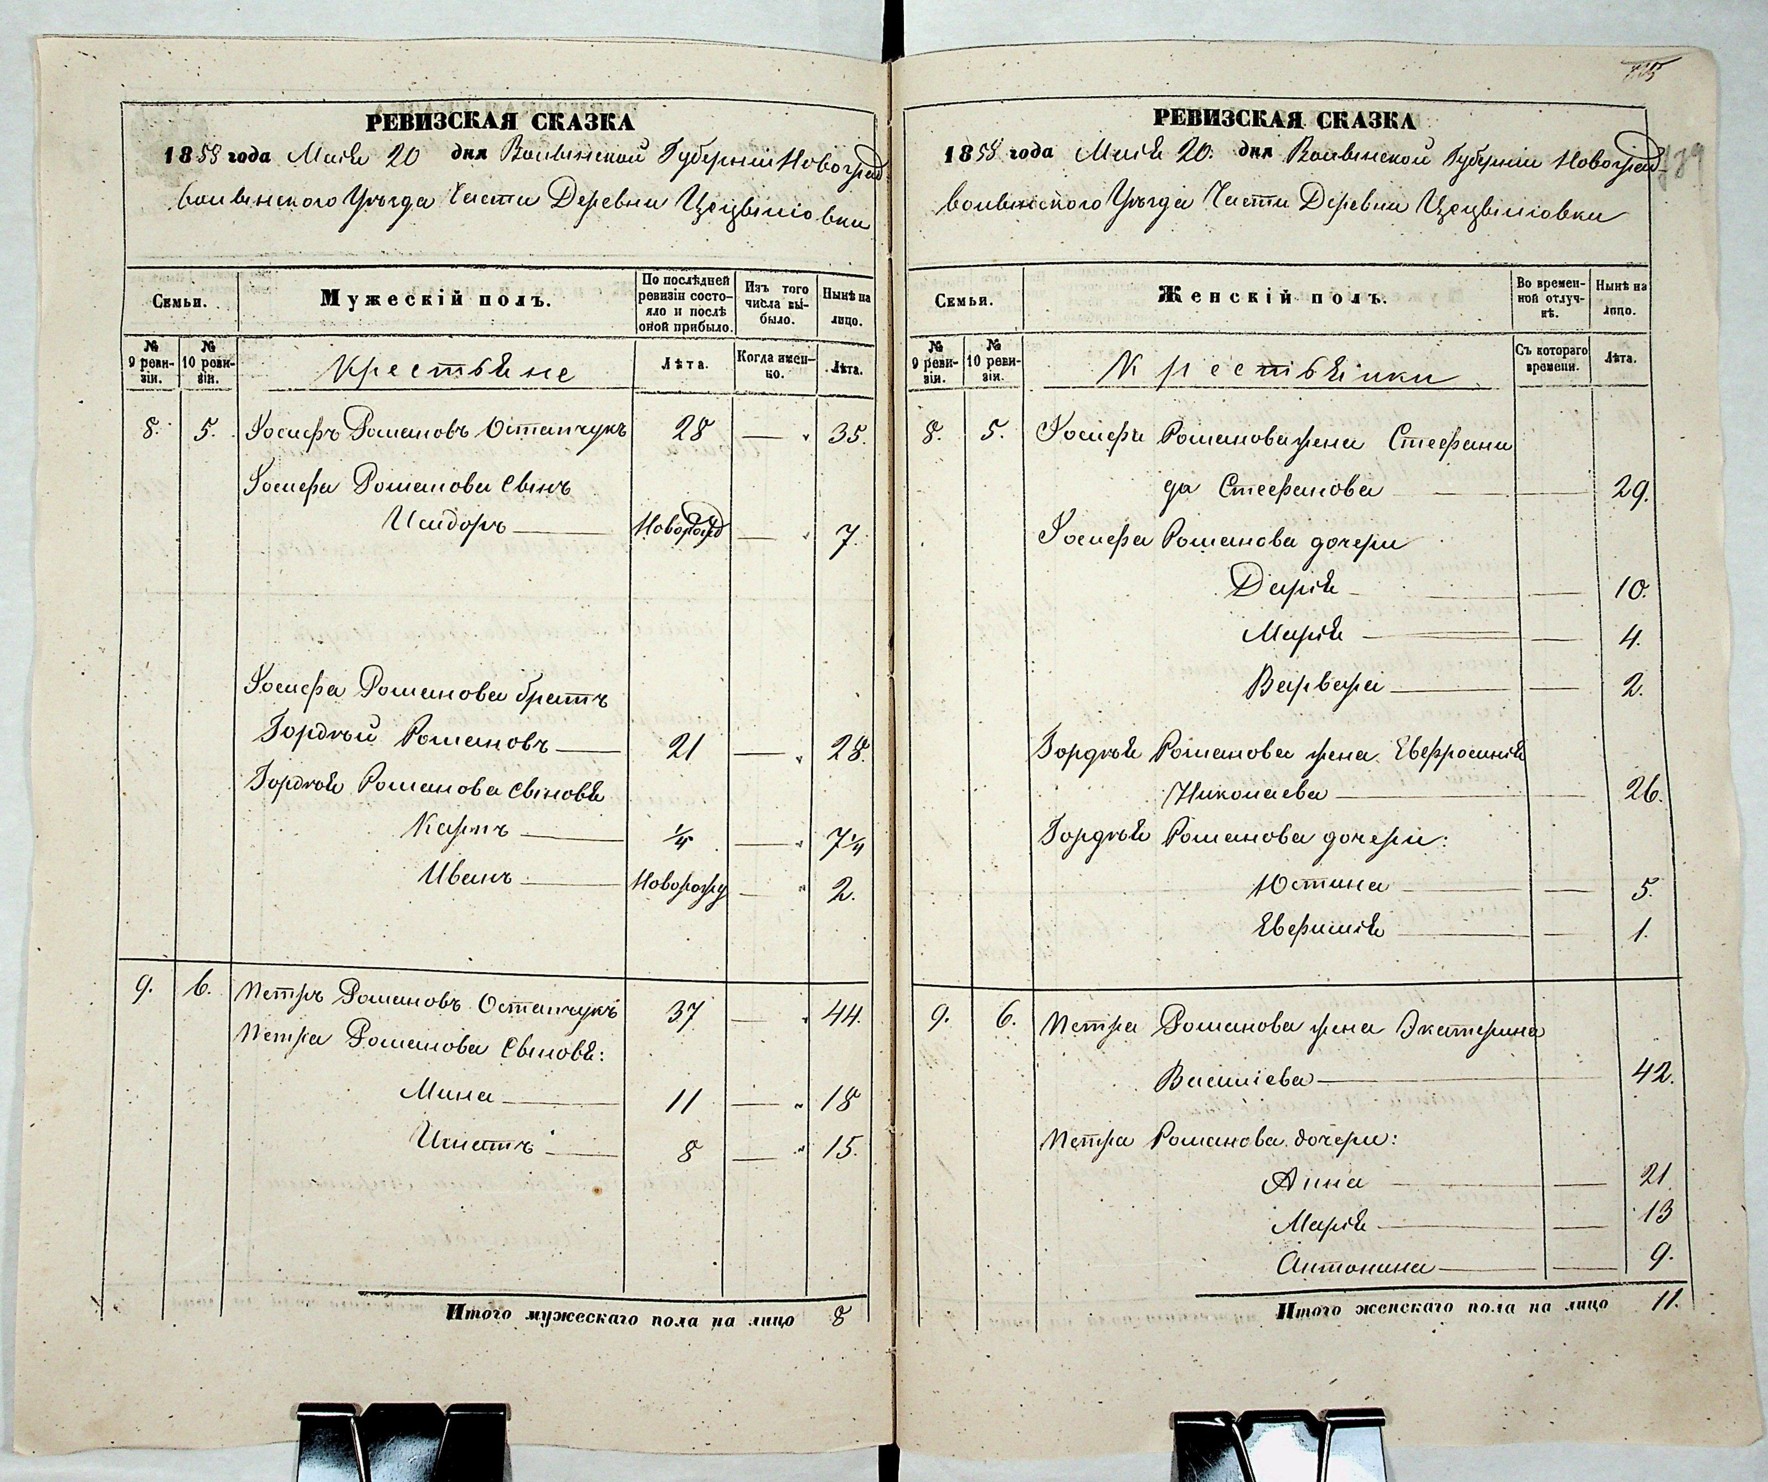 РЕВИЗСКАЯ СКАЗКА
1858 года Маія 20 дня Волынской Губерніи Новоград
волынского Уѣзда Части Деревни Цецвилiовки
Семьи.
Мужескій полъ.
По послѣдней ревизіи состояло и послѣ оной прибыло.
Изъ того числа выбыло.
Нынѣ на лицо.
№ 9 ревизіи.
№ 10 ревизіи.
Крестьяне
Лѣта.
Когда именно.
Лѣта.
8. 5. Іосифъ Романовъ Остапчукъ 28 — " 35.
Іосифа Романова сынъ
Исидоръ — Новорожд — " 7.
Іосифа Романова братъ
Гордѣй Романовъ — 21 — " 28.
Гордѣя Романова сыновья
Карпъ — 1/4 — " 7 1/4
Иванъ — Новорожд — " 2.
9. 6. Петръ Романовъ Остапчукъ 37 — " 44.
Петра Романова сыновья:
Мина — 11 — " 18
Игнатъ — 8 — " 15.
Итого мужескаго пола на лицо 8
РЕВИЗСКАЯ СКАЗКА
1858 года Маія 20. дня Волынской Губерніи Новоград
волынского Уѣзда Части Деревни Цецвилiовки
Семьи.
Женскій полъ.
Во временной отлучкѣ.
Нынѣ на лицо.
№ 9 ревизіи.
№ 10 ревизіи.
Крестьянки
Съ котораго времени.
Лѣта.
8. 5. Іосифа Романова жена Стефани
да Стефанова — — 29.
Іосифа Романова дочери
Дарія — — 10.
Марія — — 4.
Варвара — — 2.
Гордѣя Романова жена Евфросинія
Николаева — 26.
Гордѣя Романова дочери:
Юстина — — 5.
Евфимія — — 1.
9. 6. Петра Романова жена Екатерина
Василіева — 42.
Петра Романова дочери:
Анна — — 21
Марія — — 13
Антонина — — 9.
Итого женскаго пола на лицо 11.